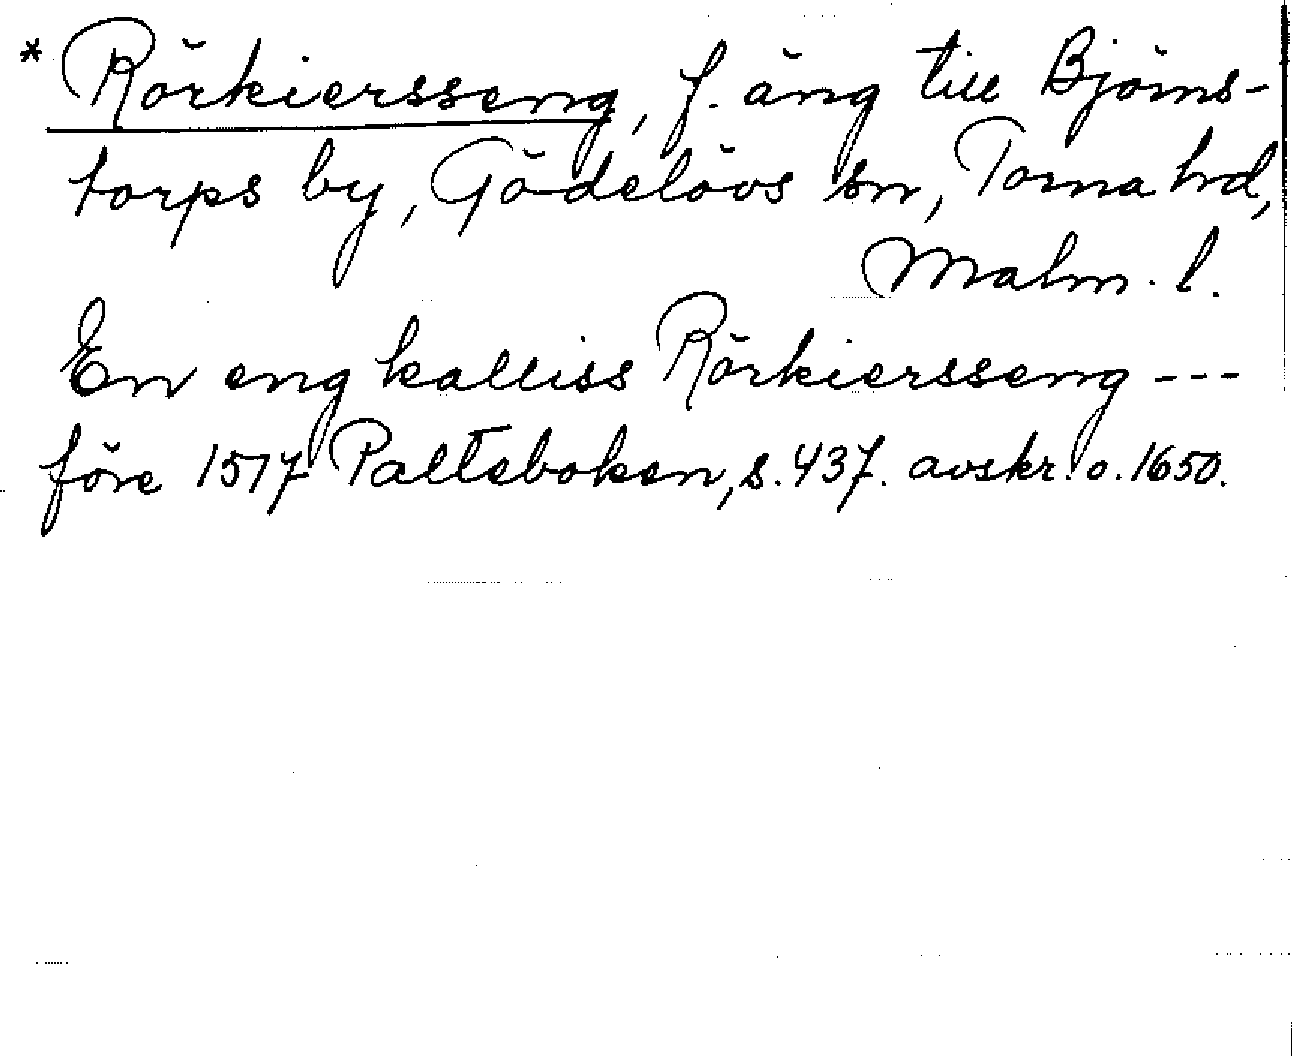 * Rörkiersseng, f. äng till Björns-
torps by, Gödelövs sn, Torna hrd,
Malm. l.
En eng kalliss Rörkiersseng ---
före 1517 Palteboken, s. 437. avskr. o. 1650.